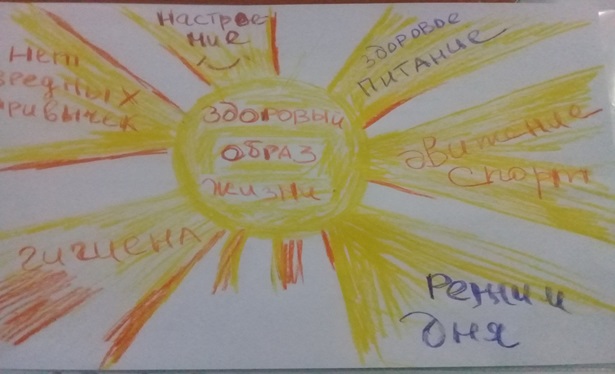 Настрое
ние
здоровое
питание
Нет
вредных
привычек
здоровый
образ
жизни
движение
спорт
гигиена
Режим
дня